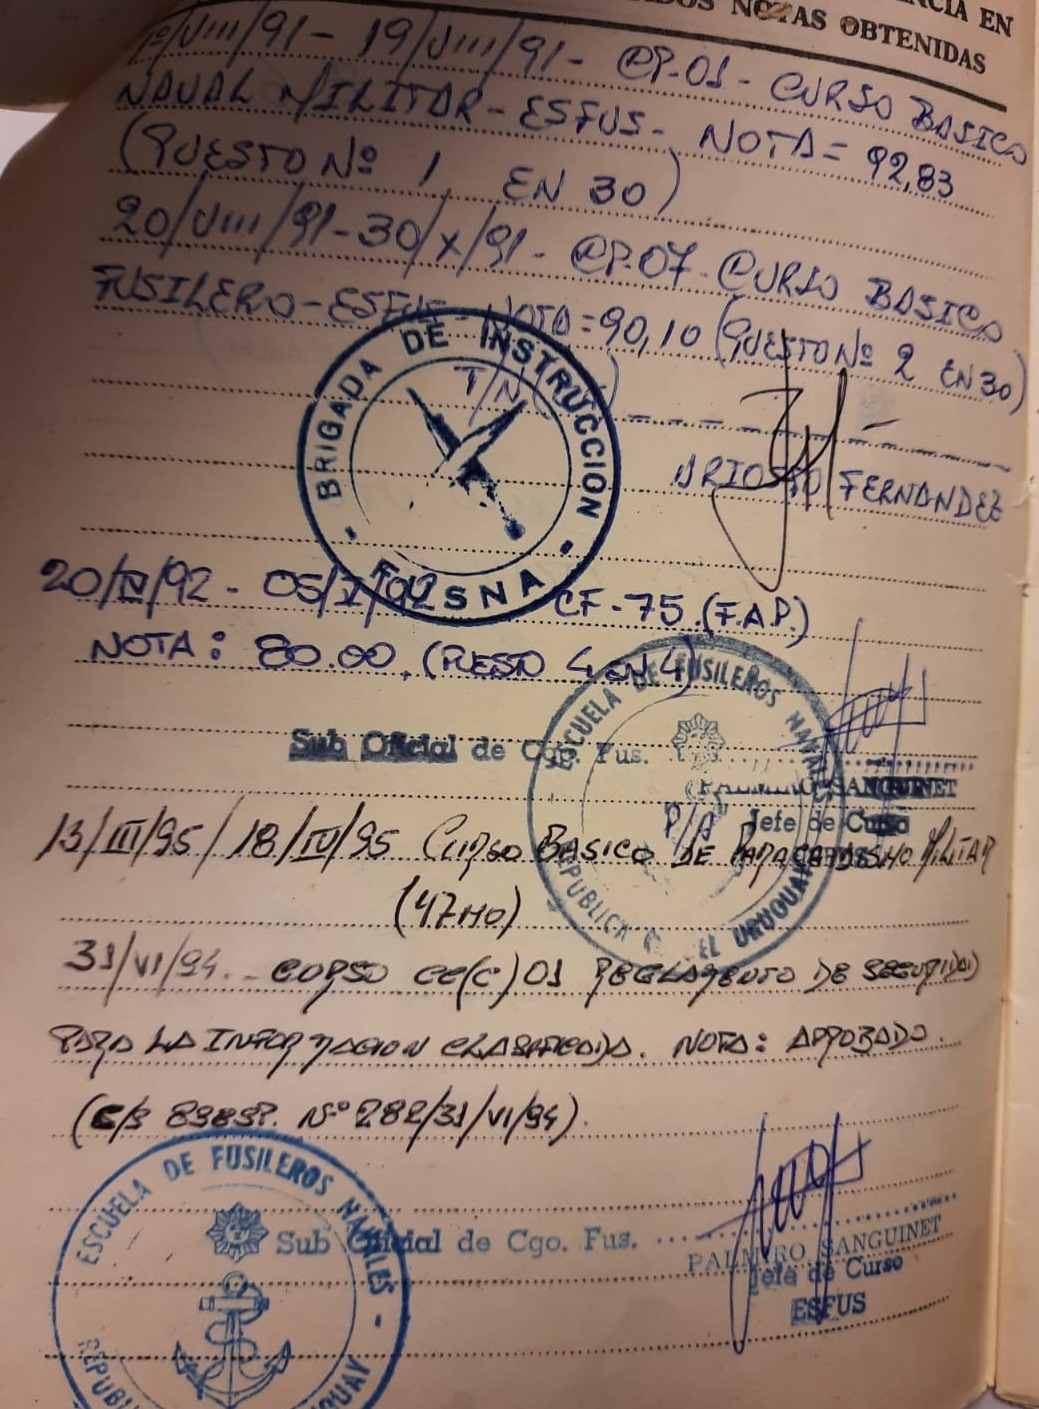 NCIA EN
ADOS NOTAS OBTENIDAS
1º/VIII/91 - 19/VIII/91 - CP-01 - CURSO BASICO
NAVAL MILITAR - ESFUS - NOTA = 92,83
(PUESTO Nº 1 EN 30)
20/VIII/91 - 30/X/91 - CP-07 - CURSO BASICO
FUSILERO - ESFUS - NOTA = 90,10 (PUESTO Nº 2 EN 30)
T/N
BRIGADA DE INSTRUCCION
FUSNA
ARIOSTO FERNANDEZ
20/IV/92 - 05/ /92 CF-75 (F.A.P.)
NOTA: 80.00. (PUESTO 4 EN 4)
ESCUELA DE FUSILEROS NAVALES
REPUBLICA O. DEL URUGUAY
Sub Oficial de Cgo. Fus.
PALMIRO SANGUINET
P/A Jefe de Curso
13/III/95 / 18/IV/95 CURSO BASICO DE PARACAIDISMO MILITAR
(47MO)
31/VI/94.- CURSO CE(C) 01 REGLAMENTO DE SEGURIDAD
PARA LA INFORMACION CLASIFICADA. NOTA: APROBADO.
Nº 282/31/VI/94).
ESCUELA DE FUSILEROS NAVALES -
Sub Oficial de Cgo. Fus.
PALMIRO SANGUINET
Jefe de Curso
ESFUS
REPUBLI
UGUAY